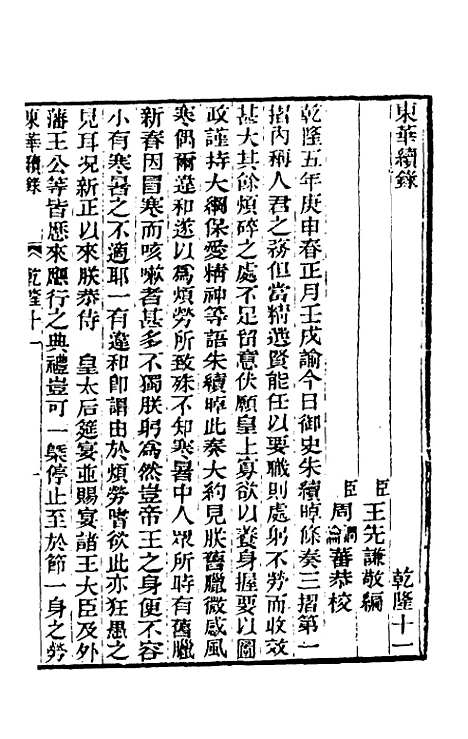 東華續錄　　乾隆十一
臣王先謙敬編
臣周潤蕃周瀹蕃恭校
乾隆五年庚申春正月壬戌諭今日御史朱續晫條奏三摺第一
摺內稱人君之務但當精選賢能任以要職則處躬不勞而收效
甚大其餘煩碎之處不足留意伏願皇上寡欲以養身握要以圖
政謹持大綱保愛精神等語朱續晫此奏大約見朕舊臘微感風
寒偶爾違和遂以爲煩勞所致殊不知寒暑中人眾所時有舊臘
新春因冒寒而咳嗽者甚多不獨朕躬爲然豈帝王之身便不容
小有寒暑之不適耶一有違和卽謂由於煩勞嗜欲此亦狂愚之
見耳况新正以來朕恭侍　皇太后筵宴並賜宴諸王大臣及外
藩王公等皆歷來應行之典禮豈可一槩停止至於節一身之勞
東華續錄　乾隆十一　一